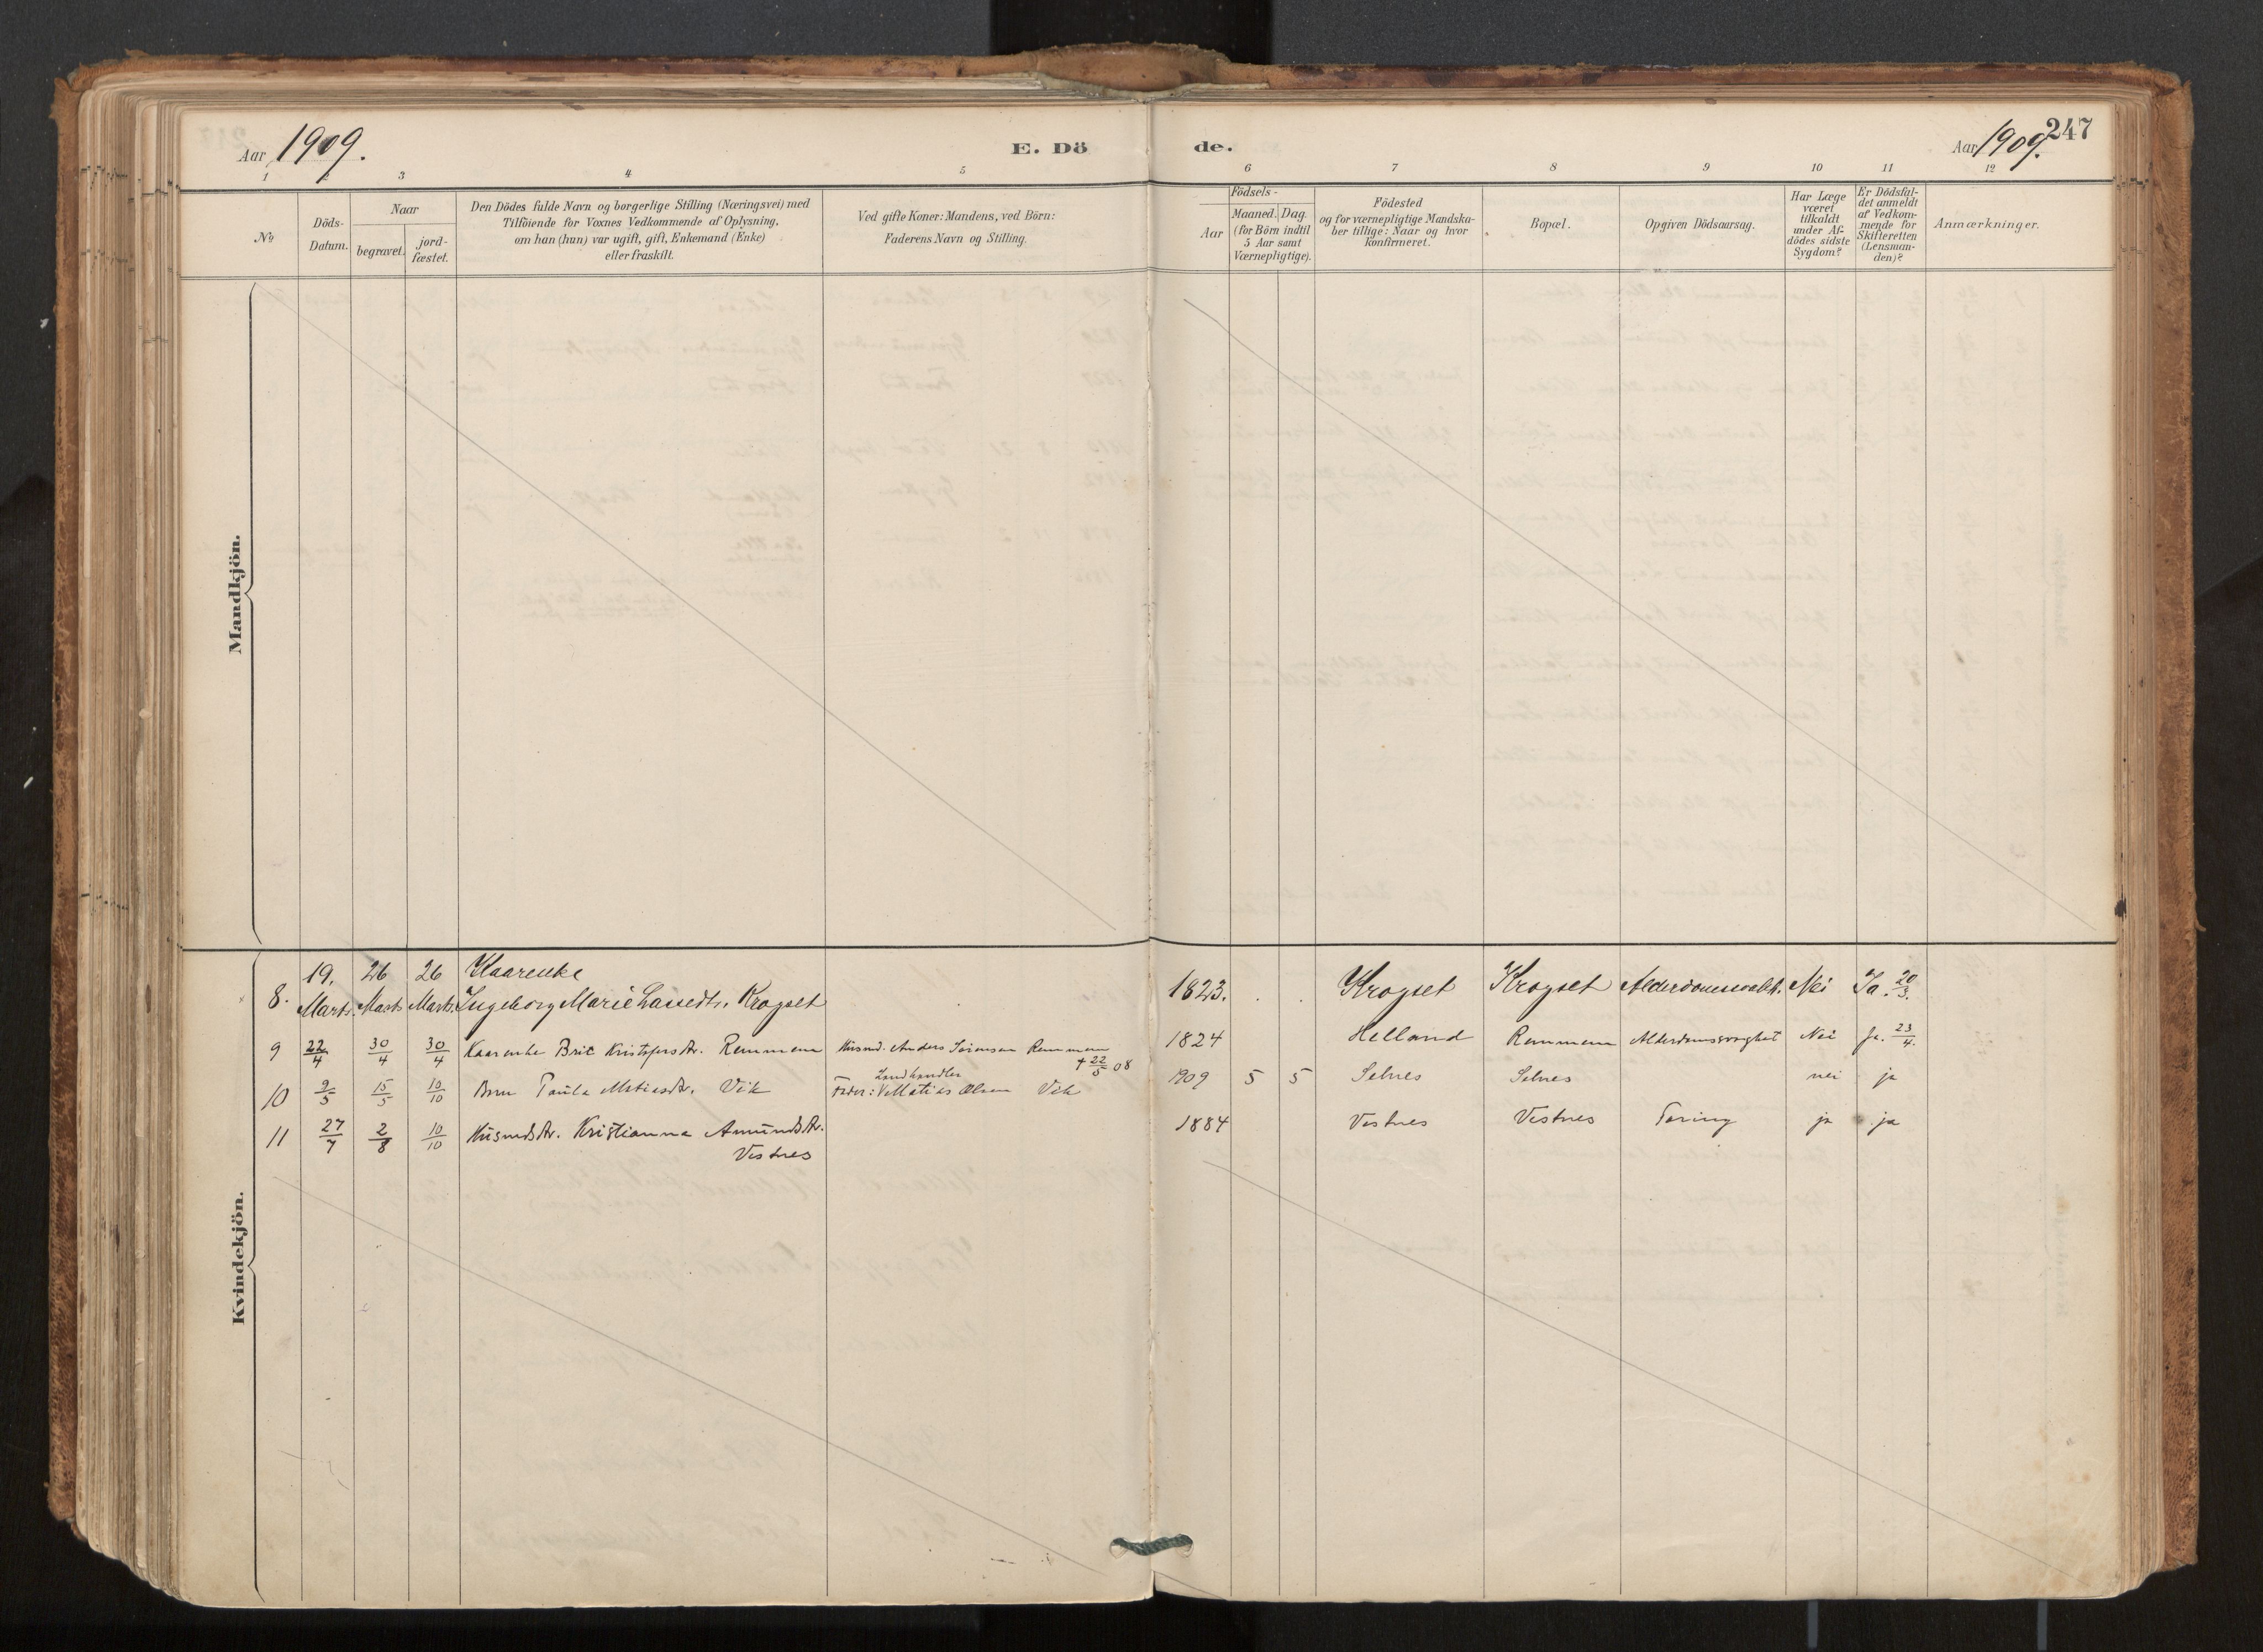 Aar 1909.
E. Dö
de.
Aar 1909.
247
1 2 3 4 5 6 7 8 9 10 11 12
№
Döds-
Datum.
Naar
begravet.
jord-
fæstet.
Den Dödes fulde Navn og borgerlige Stilling (Næringsvei) med
Tilföiende for Voxnes Vedkommende af Oplysning,
om han (hun) var ugift, gift, Enkemand (Enke)
eller fraskilt.
Ved gifte Koner: Mandens, ved Börn:
Faderens Navn og Stilling.
Födsels-
Aar
Maaned. Dag.
(for Börn indtil
5 Aar samt
Værnepligtige).
Födested
og for værnepligtige Mandska-
ber tillige: Naar og hvor
konfirmeret.
Bopæl.
Opgiven Dödsaarsag.
Har Læge
været
tilkaldt
under Af-
dödes sidste
Sygdom?
Er Dödsfal-
det anmeldt
af Vedkom-
mende for
Skifteretten
(Lensman-
den)?
Anmærkninger.
Mandkjön.
Kvindekjön.
19. 26 26 Kaarenke
8. Marts. Marts Marts. Ingeborg Marie Lassedtr. Krogset 1823. Krogset Krogset Nei Ja. 20/3.
9 22/4 30/4 30/4 Kaarenke Brit Kristofersdtr. Remmem Husmd. Anders Sörensen Remmem 1824 Helland Remmem Alderdomssvaghet Nei Ja. 23/4.
† 22/5 08
Landhandler
10 9/5 15/5 10/10 Barn Paula Matiasdtr. Vik Fader: Matias Olsen Vik 1909 5 5 Selnes Selnes nei ja
11 27/7 2/8 10/10 Husmdsdtr. Kristianna Amundsdtr. 1884 Vestnes Vestnes Tæring ja ja
Vestnes